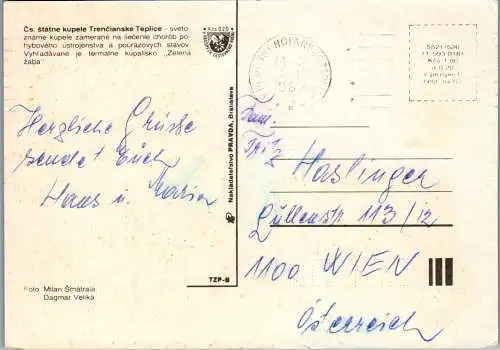 Čs. štátne kúpele Trenčianske Teplice - sveto-
známe kúpele zamerané na liečenie chorôb po-
hybového ústrojenstva a poúrazových stavov.
Vyhľadávané je termálne kúpalisko „Zelená
žaba"
Herzliche Grüsse
sendet Euch
Hans u.
Foto: Milan Šmátrala,
Dagmar Veliká
Nakladateľstvo PRAVDA, Bratislava
TZP-B
Fam.
Fritz
Haslinger
113/12
1100 WIEN
Österreich